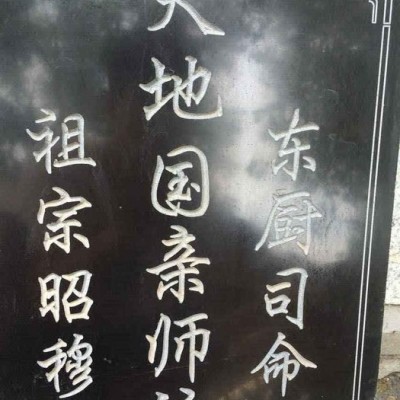 东厨司命
天地国亲师
祖宗昭穆